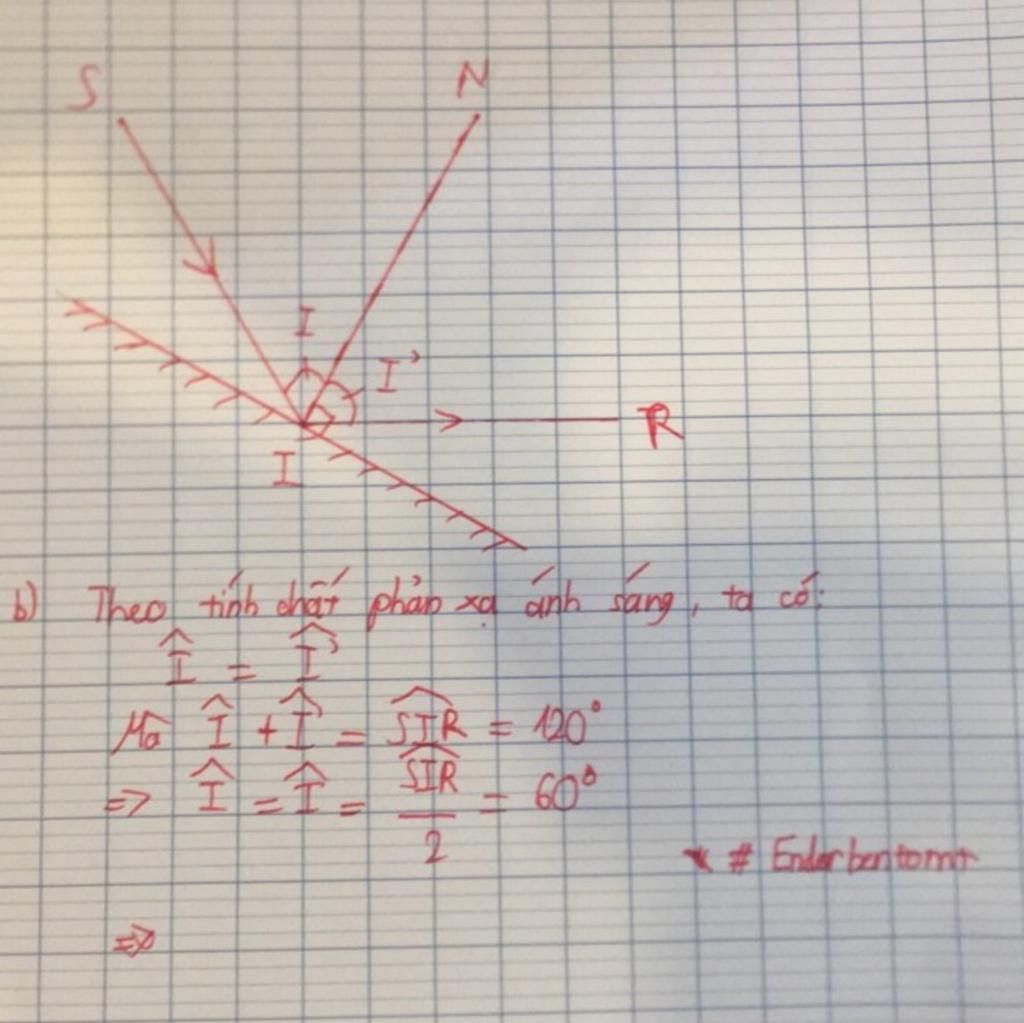 S N
I I'
R
I
b) Theo tính chất phản xạ ánh sáng, ta có:
Î = Î'
Mà Î + Î' = SIR = 120°
=> Î = Î = SIR / 2 = 60°
* # Enderbentomt
=>